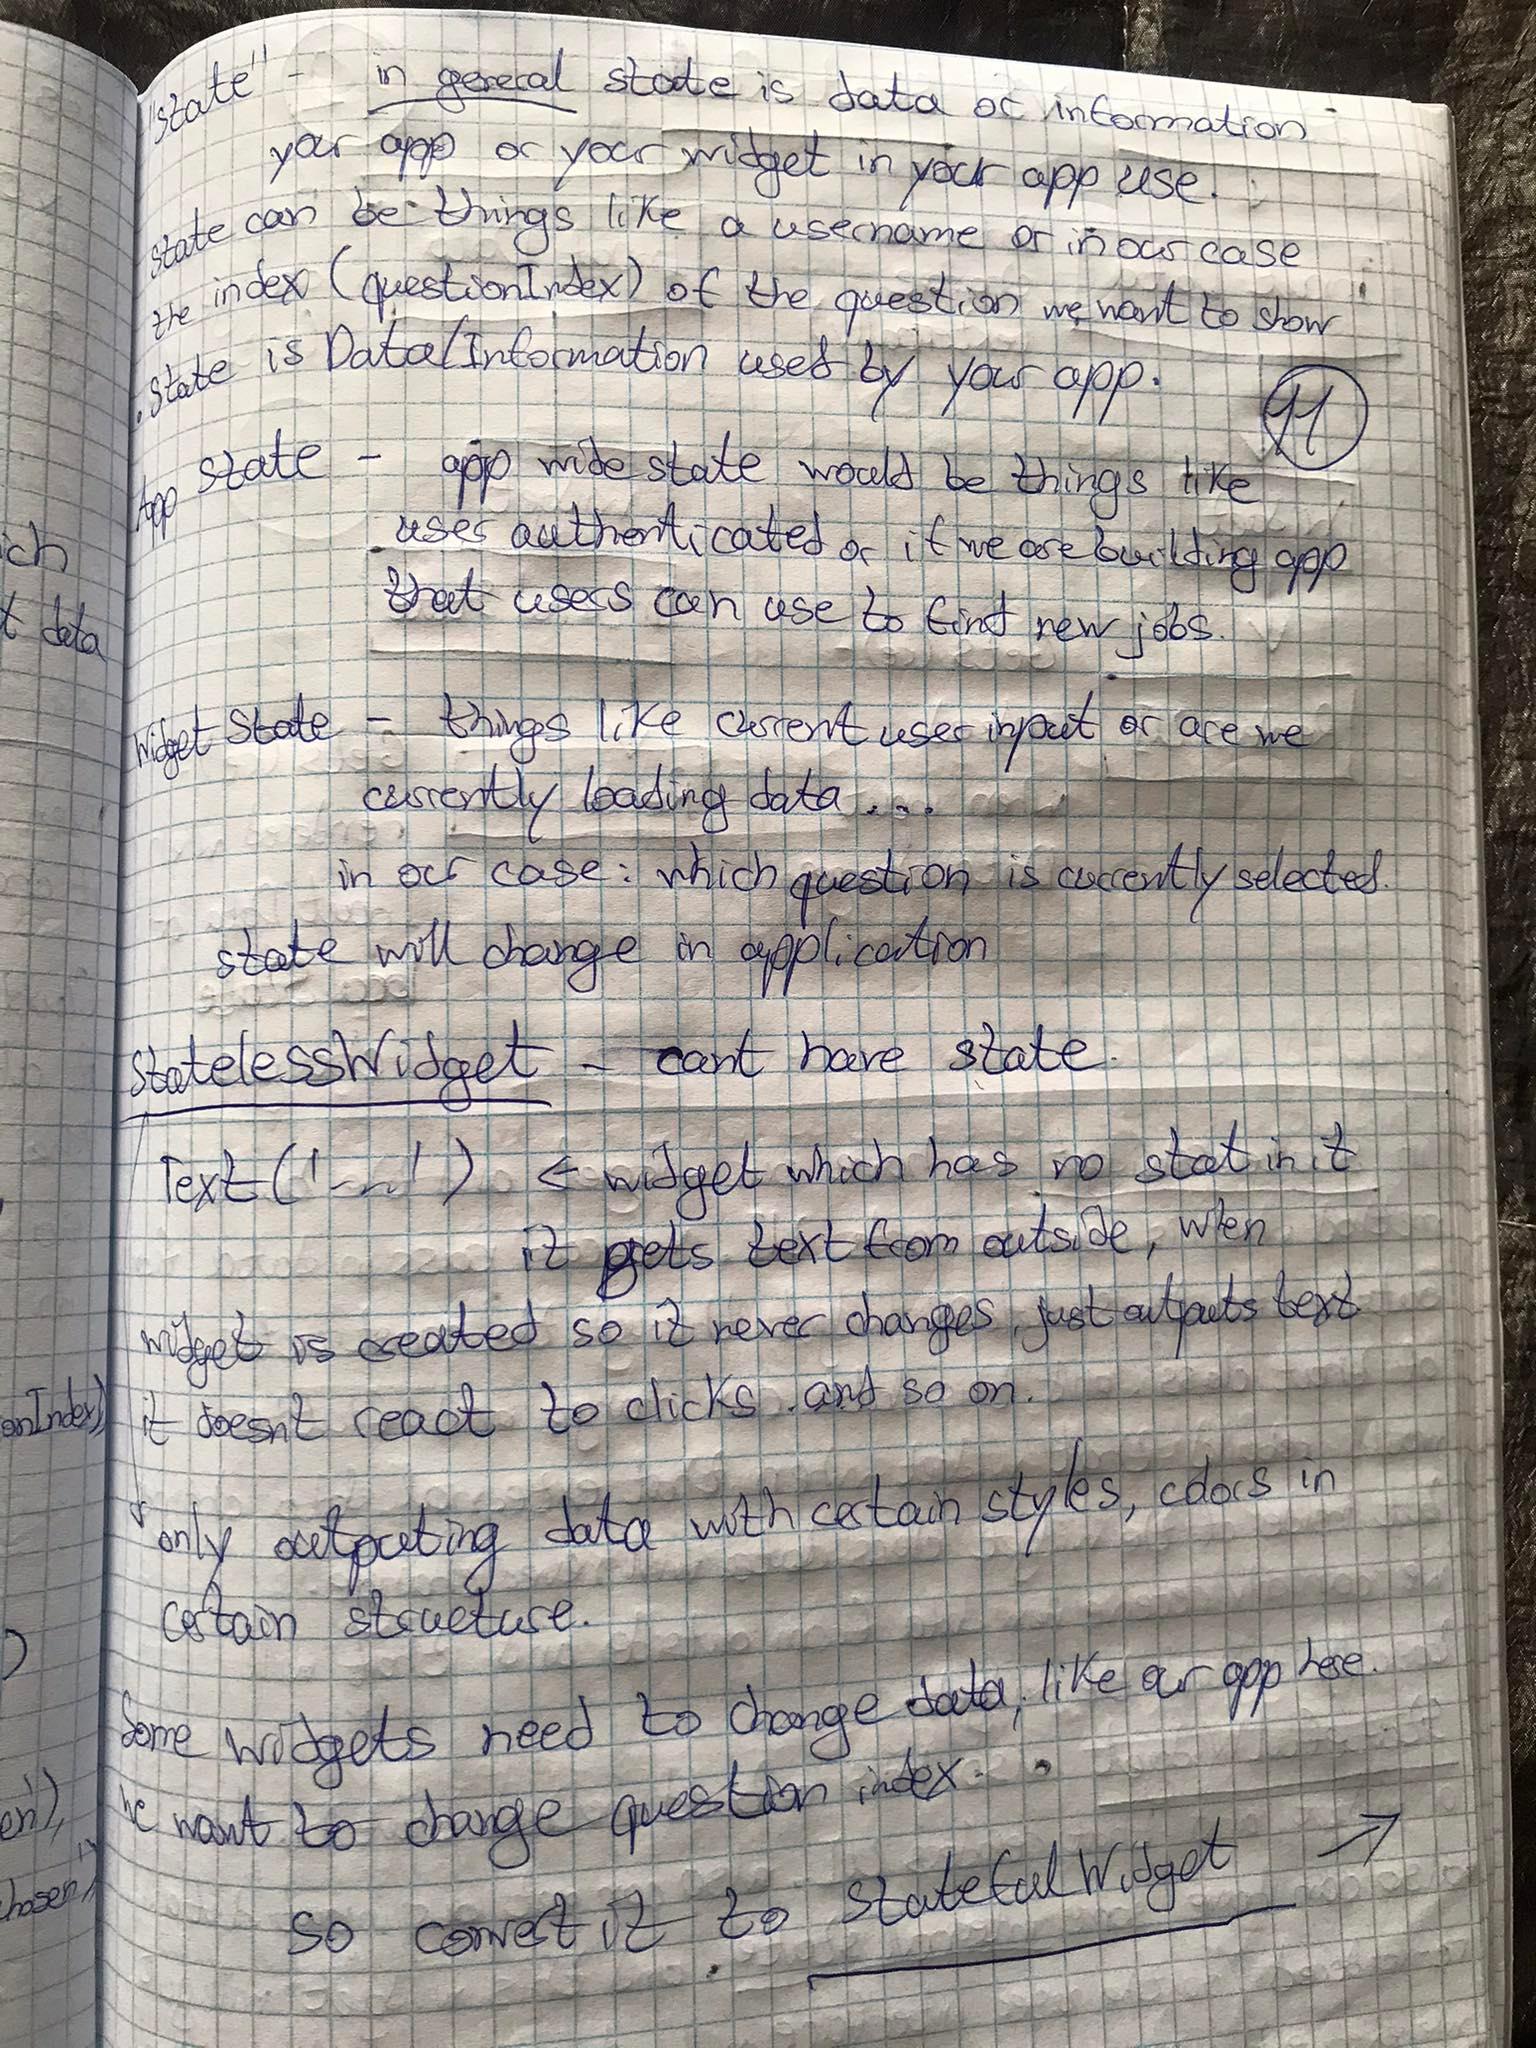 "state" - in general state is data or information
your app or your widget in your app use.
state can be things like a username or in our case
the index (questionIndex) of the question we want to show
. state is Data/Information used by your app.
11
App state - app wide state would be things like
user authenticated or if we are building app
that users can use to find new jobs.
Widget State - things like current user input or are we
currently loading data ...
in our case: which question is currently selected.
state will change in application
StatelessWidget - cant have state.
Text('---') ← widget which has no stat in it
it gets text from outside, when
widget is created so it never changes, just outputs text
it doesnt react to clicks and so on.
only outputing data with certain styles, colors in
certain structure.
Some widgets need to change data, like our app here.
we want to change question index.
so convert it to StatefulWidget →
ich
t data
onIndex)
)
en'),
hosen'